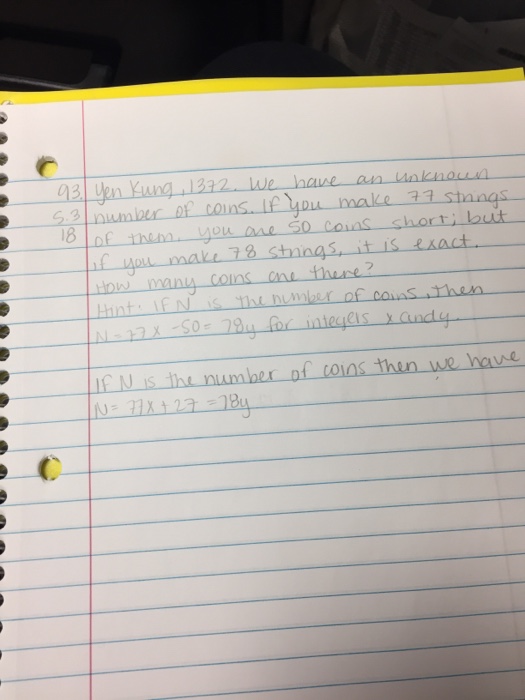 93. Yen Kung, 1372. We have an unknown
5.3 number of coins. If you make 77 strings
18 of them, you are 50 coins short; but
if you make 78 strings, it is exact.
How many coins are there?
Hint: If N is the number of coins, then
N = 77x - 50 = 78y for integers x and y.
If N is the number of coins then we have
N = 77x + 27 = 78y